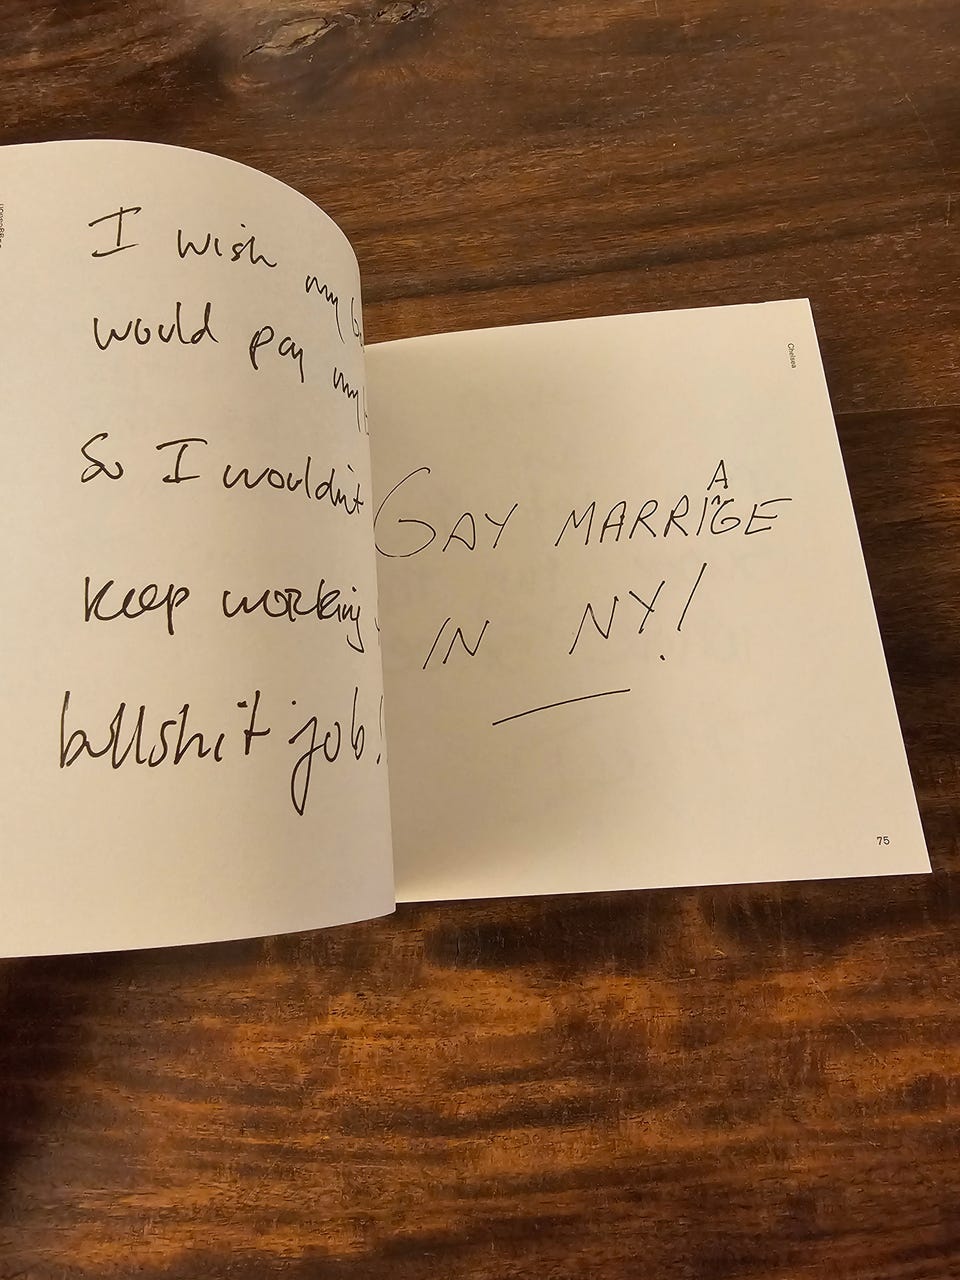 I wish my
would pay my
So I wouldn't
keep working
bullshit job!
Chelsea
GAY MARRIAGE
IN NY!
75